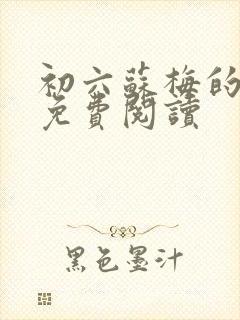 初六蘇梅的
免費閱讀
黑色墨汁